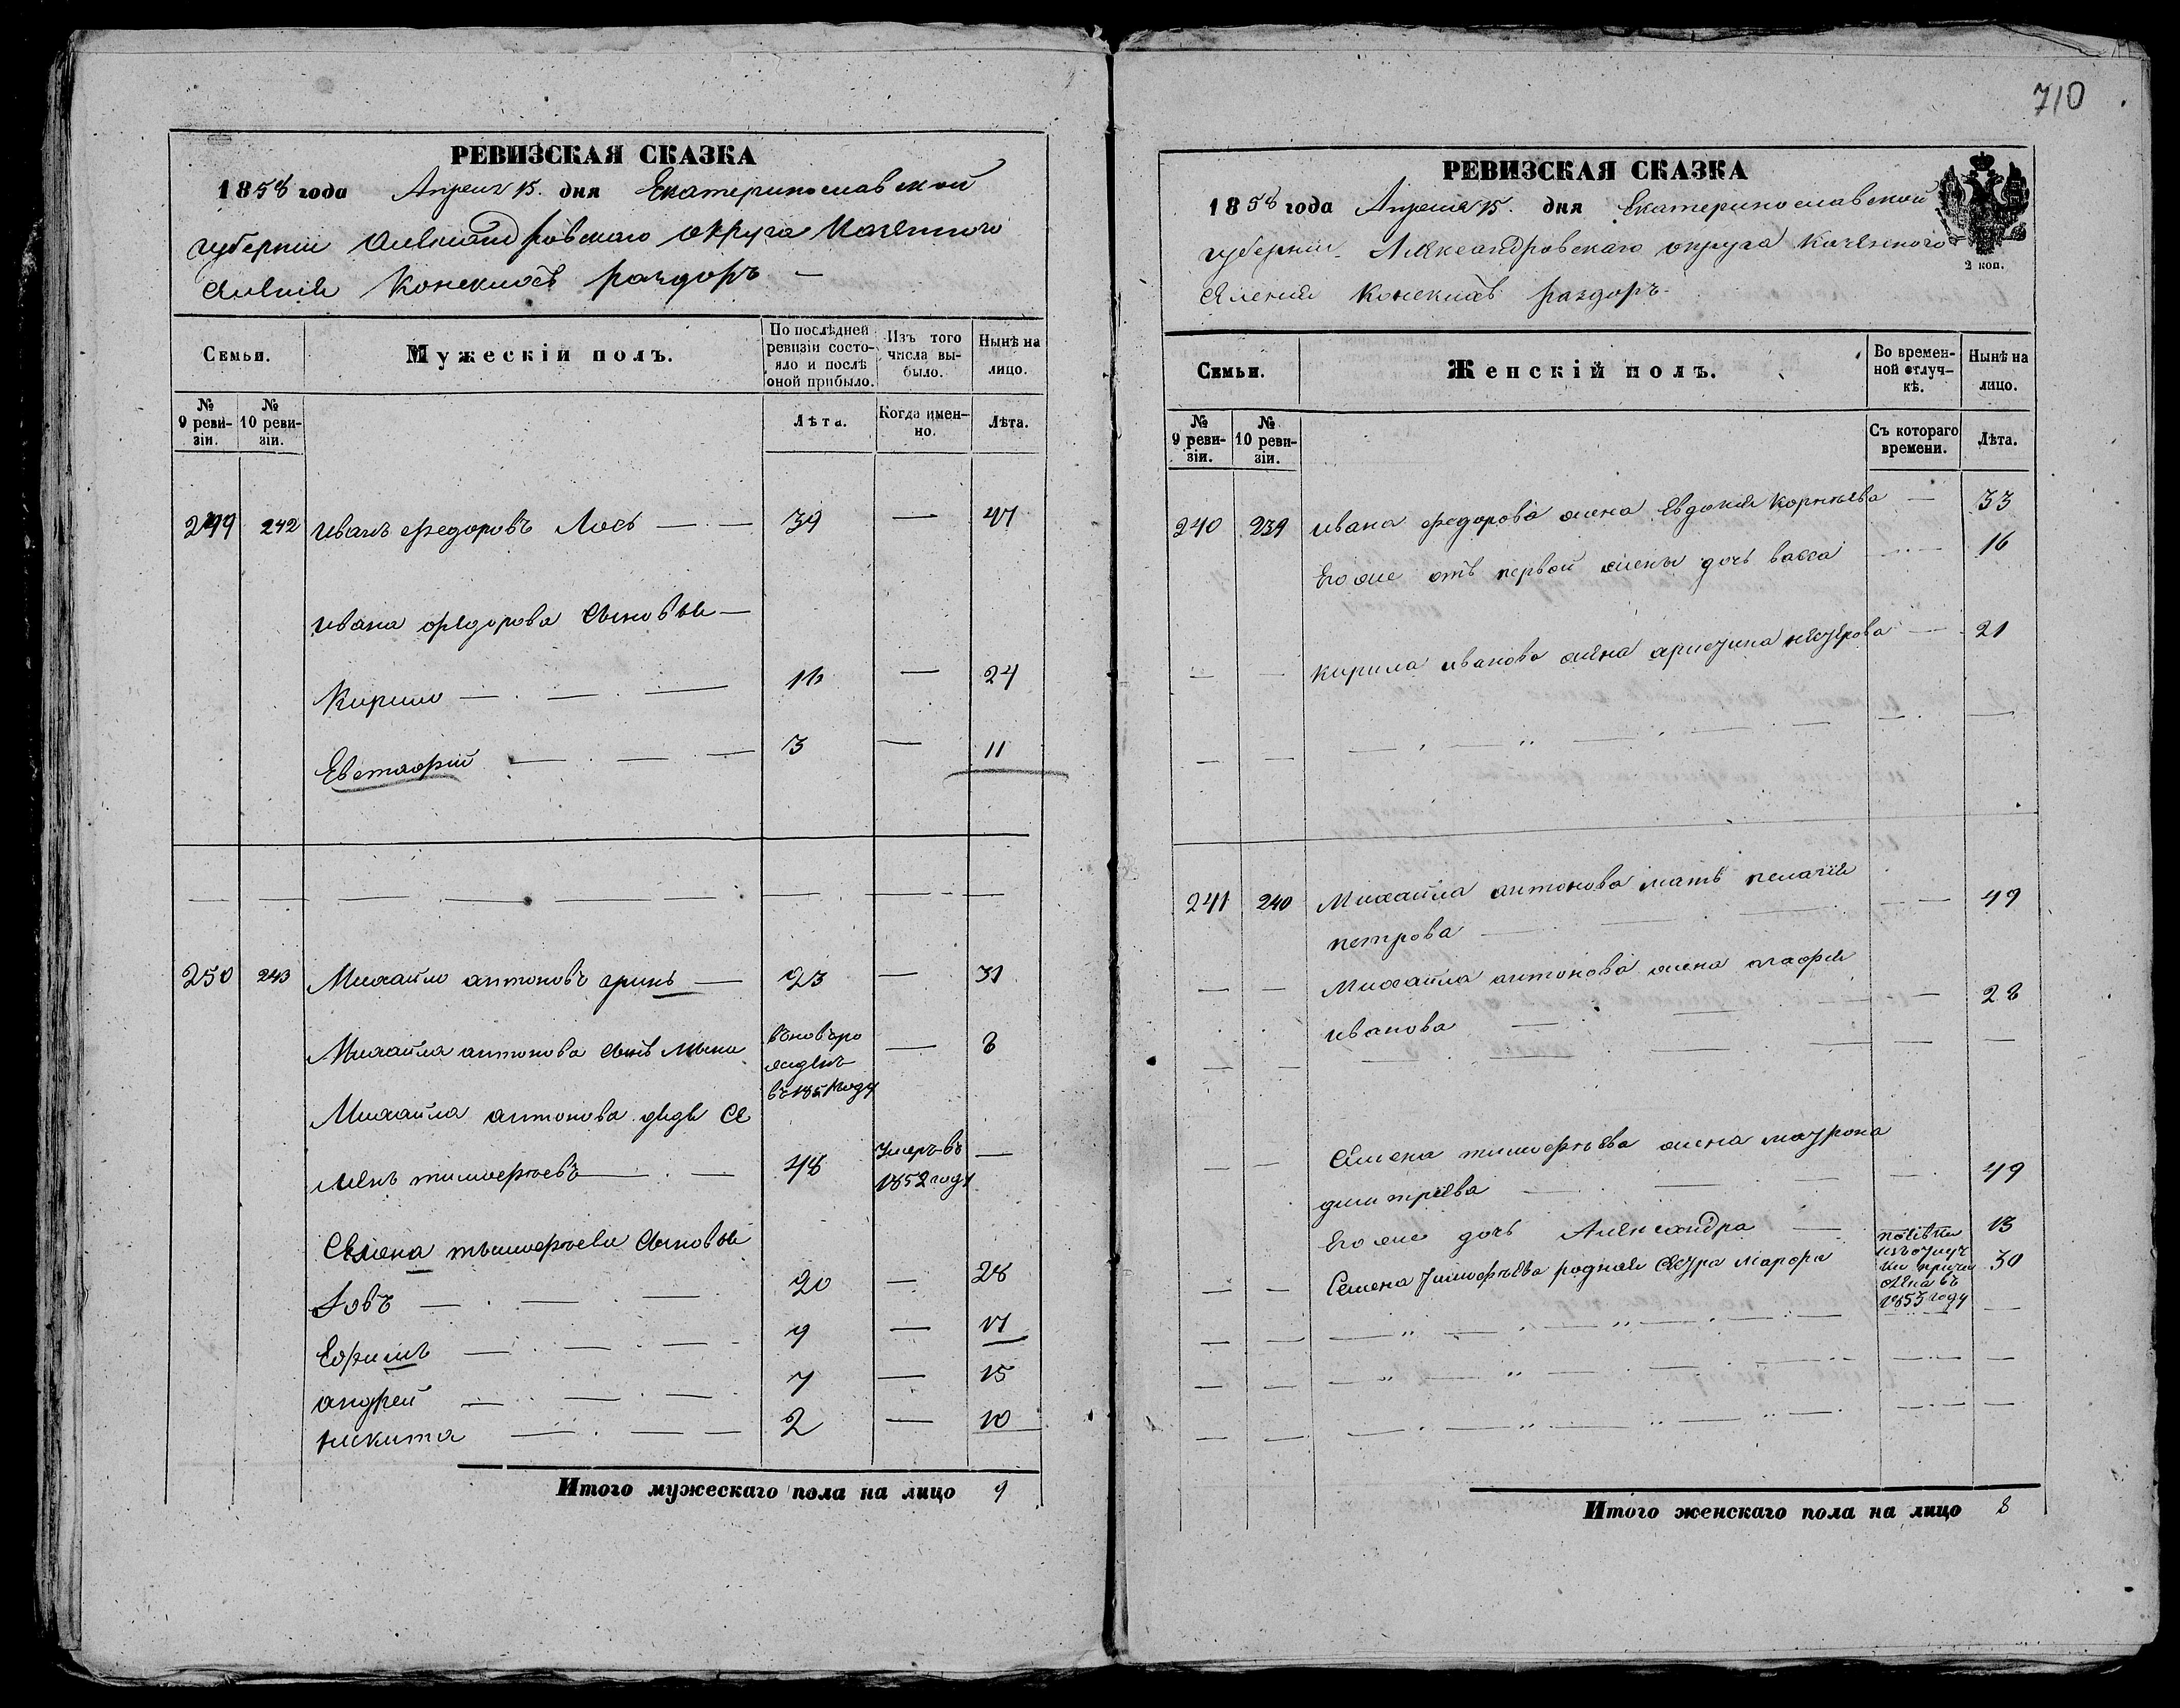 710
РЕВИЗСКАЯ СКАЗКА
1858 года Апреля 15. дня Екатеринославской
губерніи Александровскаго округа Казенного
селенія Конскихъ раздоръ —
Семьи.
Мужескій полъ.
По послѣдней ревизіи состояло и послѣ оной прибыло.
Изъ того числа выбыло.
Нынѣ на лицо.
№ 9 ревизіи.
№ 10 ревизіи.
Лѣта.
Когда именно.
Лѣта.
242 Иванъ Федоровъ Лось — — 39 —
Ивана Федорова сыновья —
Кирило — . — . — — 24
Евстафій — . — . — 3 — 11
250 243 Михайло антоновъ гринь — 23 — 31
Михайла антонова сынъ
вновь ро
жденъ — 8
въ годy
Михайла антонова дядя Се
менъ тимофѣевъ — . — 48 Умеръ въ —
1852 году
Семена тимофѣева сыновья
Іовъ — . — . — 20 — 28
Ефимъ — . — . — 9 — 17
андрей — . — . — 7 — 15
никита — . — — 2 — 10
Итого мужескаго пола на лицо 9
РЕВИЗСКАЯ СКАЗКА
1858 года Апреля 15. дня Екатеринославской
губерніи Александровскаго округа Казенного
селенія Конскихъ раздоръ
2 коп.
Семьи.
Женскій полъ.
Во временной отлучкѣ.
Нынѣ на лицо.
№ 9 ревизіи.
№ 10 ревизіи.
Съ котораго времени.
Лѣта.
240 239 Ивана Федорова жена Евдокія Корнѣева — 33
Его же отъ первой жены дочь васса — 16
— — Кирила иванова жена — 21
241 240 Михайла антонова мать пелагія
петрова — 49
— — Михайла антонова жена агафія
иванова — 28
— — Семена тимофѣева жена
дмитріева — 49
Его же дочь Александра — 13
— — Семена тимофѣева родная сестра 30
1853 году
Итого женскаго пола на лицо 8